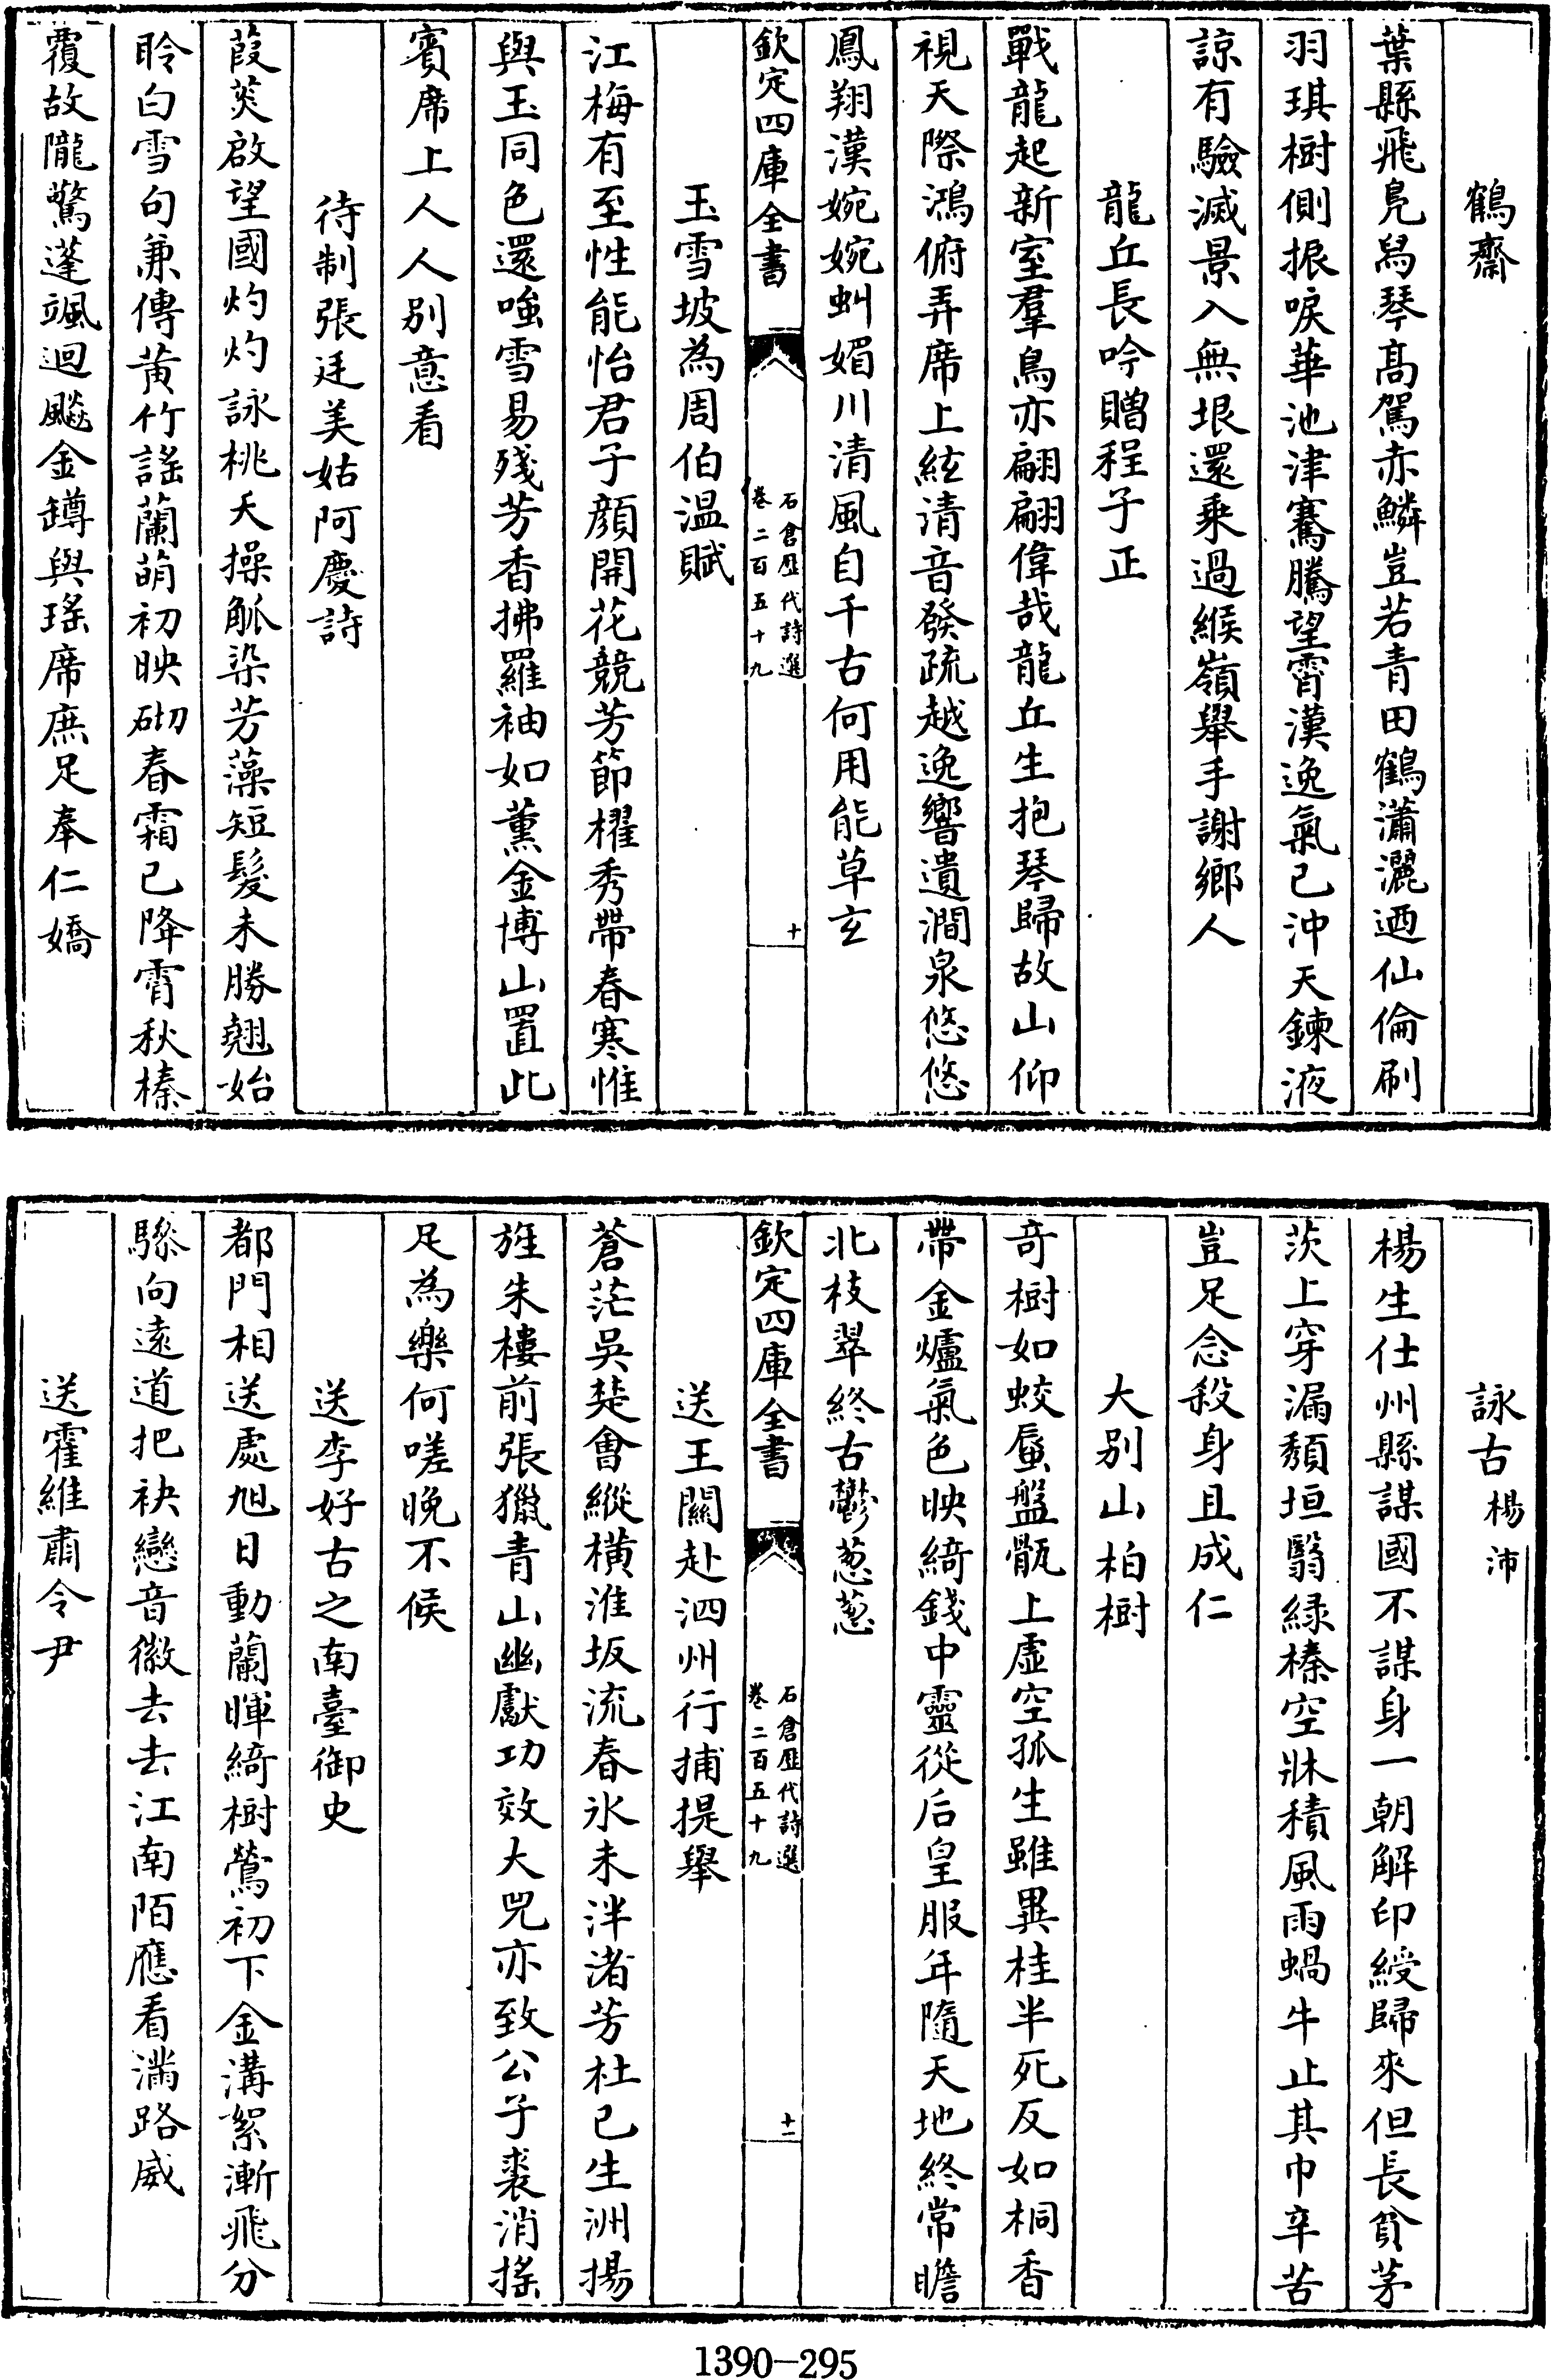 鶴齋
葉縣飛鳧舄琴髙駕赤鱗豈若青田鶴瀟灑迺仙倫刷
羽琪樹側振唳華池津騫騰望霄漢逸氣已沖天鍊液
諒有驗滅景入無垠還乘過緱嶺舉手謝鄉人
龍丘長吟贈程子正
戰龍起新室羣鳥亦翩翩偉哉龍丘生抱琴歸故山仰
視天際鴻俯弄席上絃清音發疏越逸響遺澗泉悠悠
鳳翔漢婉婉虯媚川清風自千古何用能草玄
欽定四庫全書
石倉歷代詩選
卷二百五十九
十
玉雪坡為周伯温賦
江梅有至性能怡君子顔開花競芳節櫂秀帶春寒惟
與玉同色還嗤雪易殘芳香拂羅袖如薰金博山置此
賓席上人人别意看
待制張廷美姑阿慶詩
葭莢啟望國灼灼詠桃夭操觚染芳藻短髮未勝翹始
聆白雪句兼傳黄竹謡蘭萌初映砌春霜已降霄秋榛
覆故隴驚蓬颯迴飇金罇與瑤席庶足奉仁嬌
詠古楊沛
楊生仕州縣謀國不謀身一朝解印綬歸來但長貧茅
茨上穿漏頽垣翳緑榛空牀積風雨蝸牛止其巾辛苦
豈足念殺身且成仁
大别山柏樹
奇樹如蛟蜃盤骩上虛空孤生雖異桂半死反如桐香
帶金爐氣色映綺錢中靈從后皇服年隨天地終常瞻
北枝翠終古鬱葱葱
欽定四庫全書
石倉歷代詩選
卷二百五十九
十一
送王關赴泗州行捕提舉
蒼茫吳楚會縱橫淮坂流春氷未泮渚芳杜已生洲揚
旌朱樓前張獵青山幽獻功效大兕亦致公子裘消揺
足為樂何嗟晚不候
送李好古之南臺御史
都門相送處旭日動蘭暉綺樹鶯初下金溝絮漸飛分
驂向遠道把袂戀音徽去去江南陌應看滿路威
送霍維肅令尹
1390-295